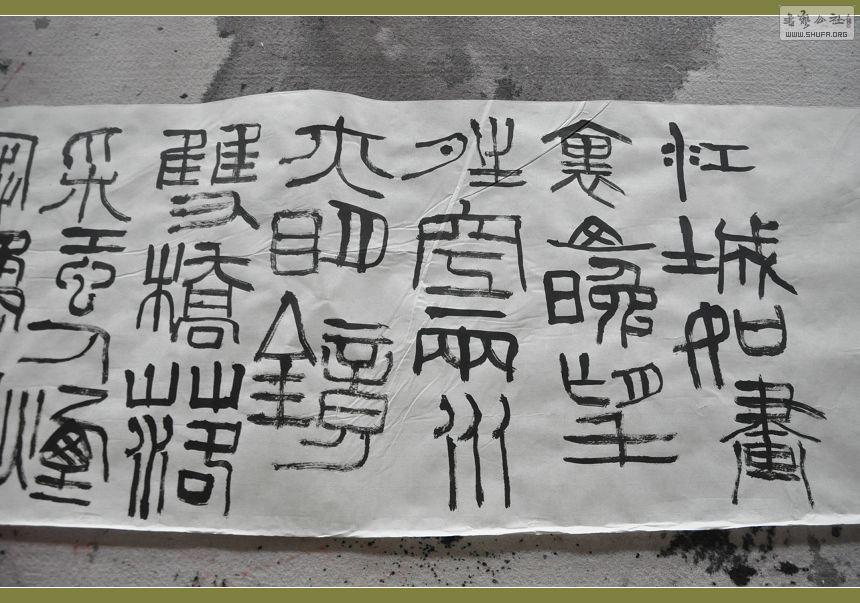 江城如畫
裏山晚望
晴空兩水
夾明鏡
雙橋落
采虹人煙
書藝公社
WWW.SHUFA.ORG